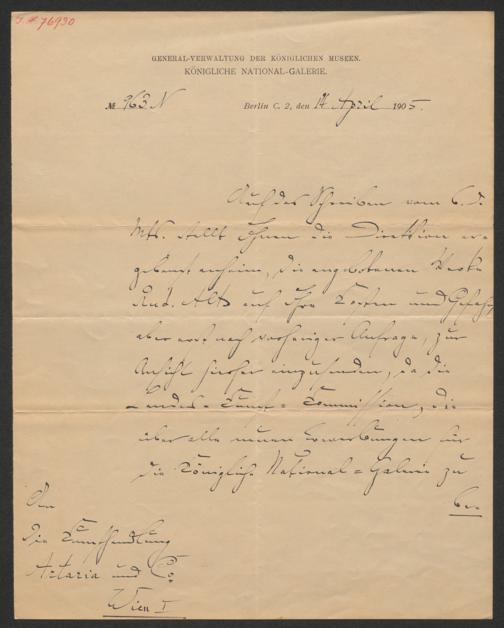 J.N. 76930
GENERAL-VERWALTUNG DER KÖNIGLICHEN MUSEEN.
KÖNIGLICHE NATIONAL-GALERIE.
№ 963 N Berlin C. 2, den 14 April 1905.
Auf das Schreiben vom 6. d.
Mts. stellt Ihnen die Direktion er-
gebenst anheim, die angebotenen Werke
Rud. Alts auf Ihre Kosten und Gefahr,
aber erst nach vorheriger Anfrage, zur
Ansicht hierher einzusenden, da die
Landes-Kunst-Kommission, die
über alle neuen Erwerbungen für
die Königliche National-Galerie zu
be-
An
die Kunsthandlung
Artaria und Co.
Wien I